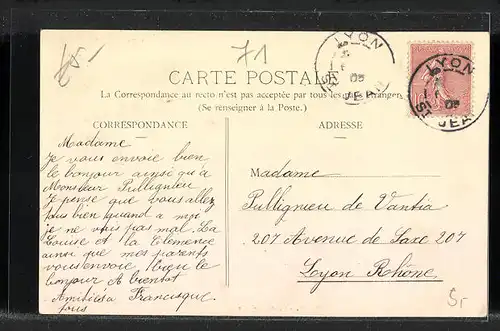 5-
71
LYON
ST JEAN
05
LYON
ST JEAN
05
CARTE POSTALE
La Correspondance au recto n'est pas acceptée par tous les pays étrangers
(Se renseigner à la Poste.)
CORRESPONDANCE
Madame
Je vous envoie bien
le bonjour ainsi qu'a
Monsieur Pullignieu
Je pense que vous allez
plus bien quand a moi
je ne vais pas mal. La
Louise et la Clemence
ainsi que mes parents
vous envoie bien le
bonjour A bientot
Amitiés a Francisque
tous
ADRESSE
Madame
Pullignieu de Vantia
207 Avenue de Saxe 207
Lyon Rhône
5,-